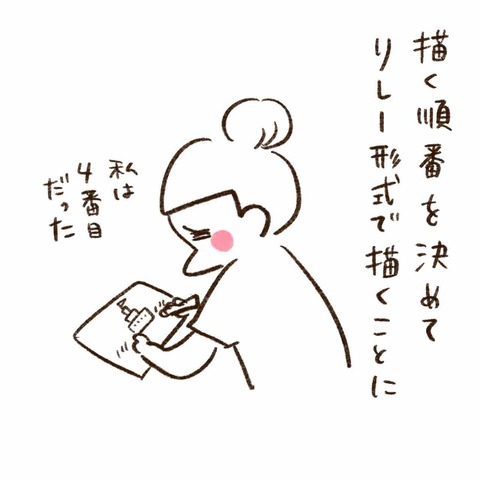 描く順番を決めて
リレー形式で描くことに
私は
4番目
だった